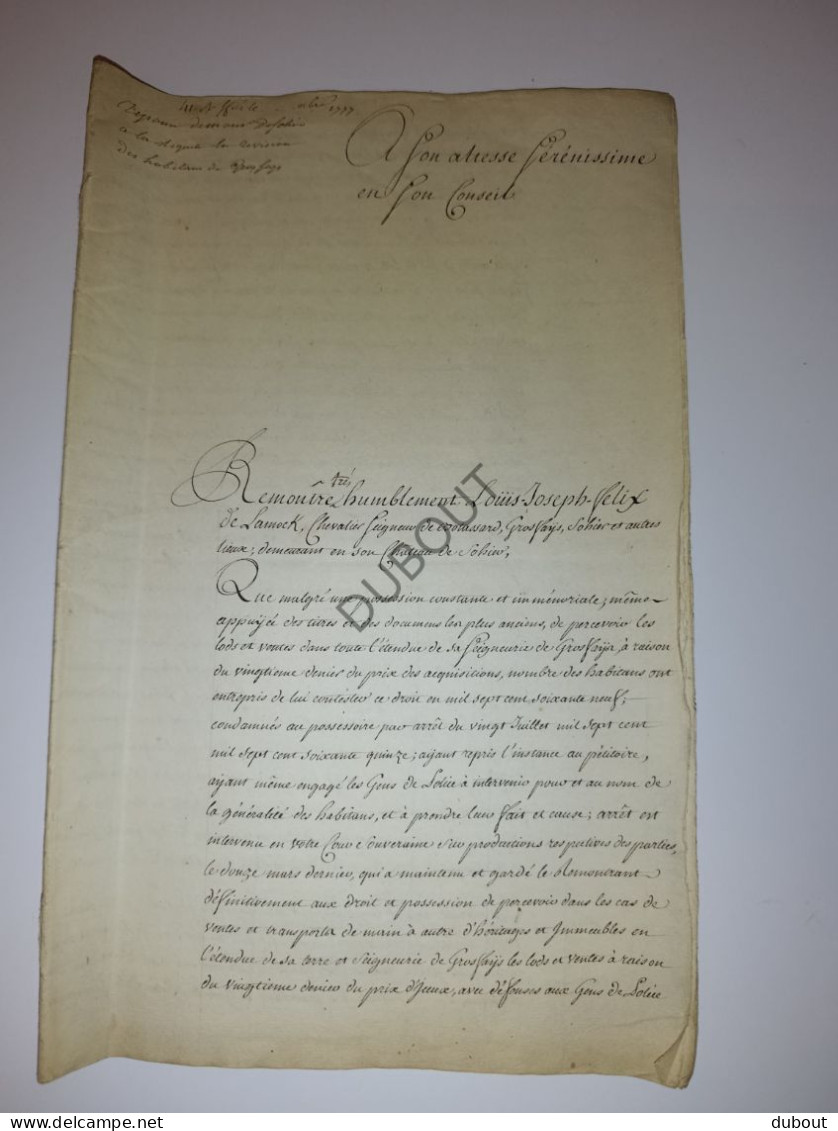 1777
des habitans de Grosfays
A Son altesse Sérénissime
en Son Conseil
très
Remontre humblement Loüis-Joseph-felix
de Lamock, Chevalier Seigneur de Grosfaÿs, Sohier et autres
lieux; demeurant en son Chateau de Sohier,
Que malgré une possession constante et immémoriale; même
appuÿée des titres et des documens les plus anciens, de percevoir les
lods et ventes dans toute l'étendue de sa Seigneurie de Grosfaÿs, à raison
du vingtieme denier du prix des acquisitions, nombre des habitans ont
entrepris de lui contester ce droit en mil sept cent soixante neuf;
condamnés au possessoire par arrêt du vingt Juillet mil sept cent
mil sept cent soixante quinze; aÿant repris l'instance au pétitoire,
aÿant même engagé les Gens de Police à intervenir pour et au nom de
la généralité des habitans, et à prendre leur fait et cause; arrêt est
intervenu en votre Cour Souveraine sur productions respectives des parties,
le douze mars dernier, qui a maintenu et gardé le Remontrant
définitivement aux droit et possession de percevoir dans les cas de
ventes et transports de main à autre d'héritages et Immeubles en
l'étendue de sa terre et Seigneurie de Grosfaÿs les lods et ventes à raison
du vingtieme denier du prix d'Iceux, avec défenses aux Gens de Police
DUBOUT
dubout